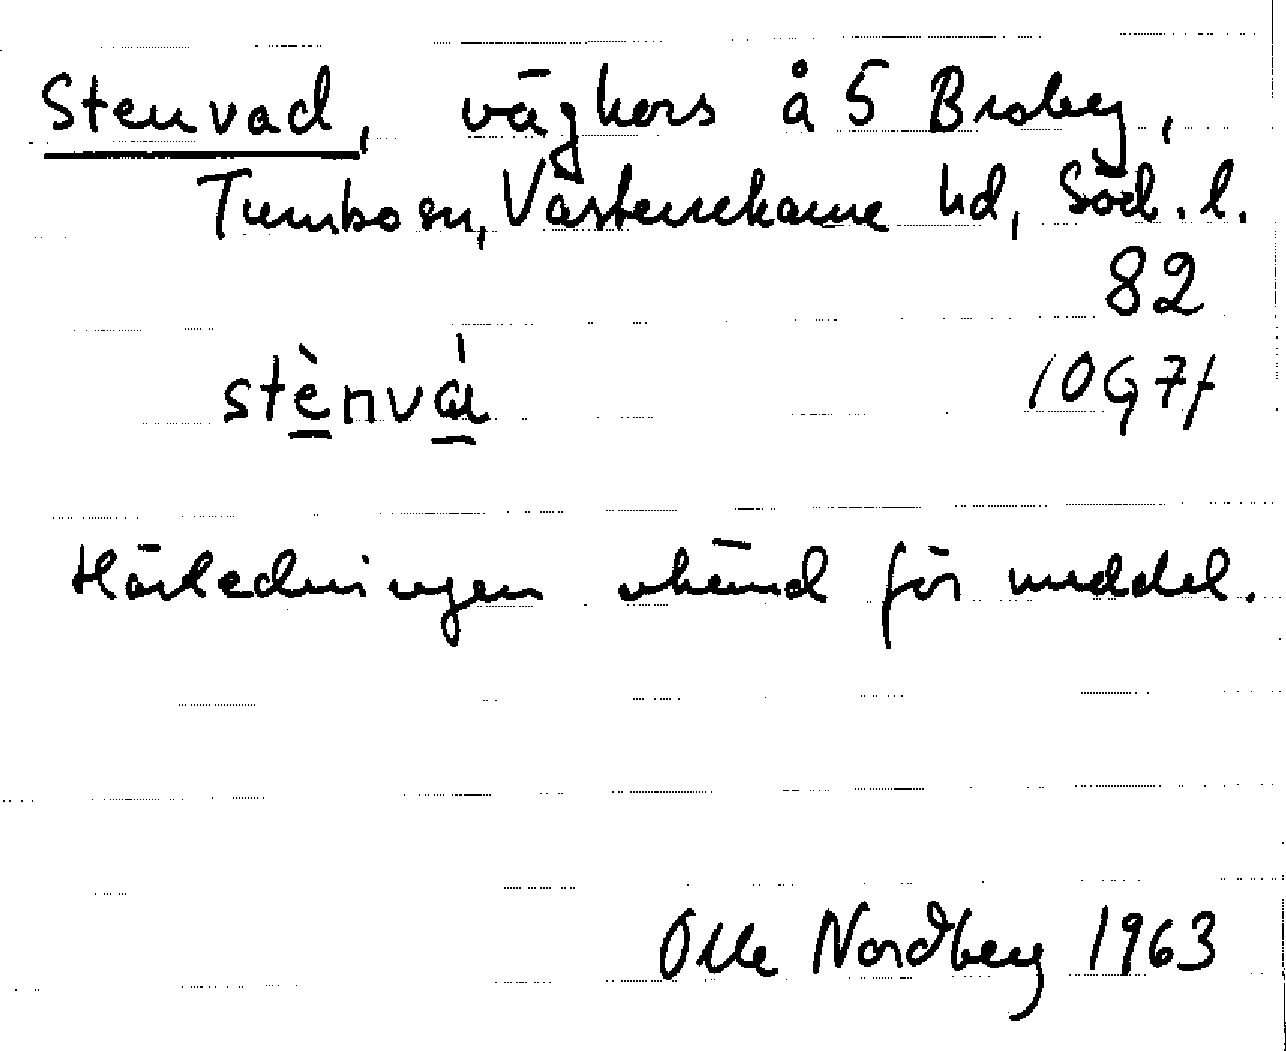 Stenvad, vägkors å 5 Broby,
Tumbo sn, Västerrekarne hd, Söd. l.
82
stènvá
10G7f
Härledningen okänd för meddel.
Olle Nordberg 1963